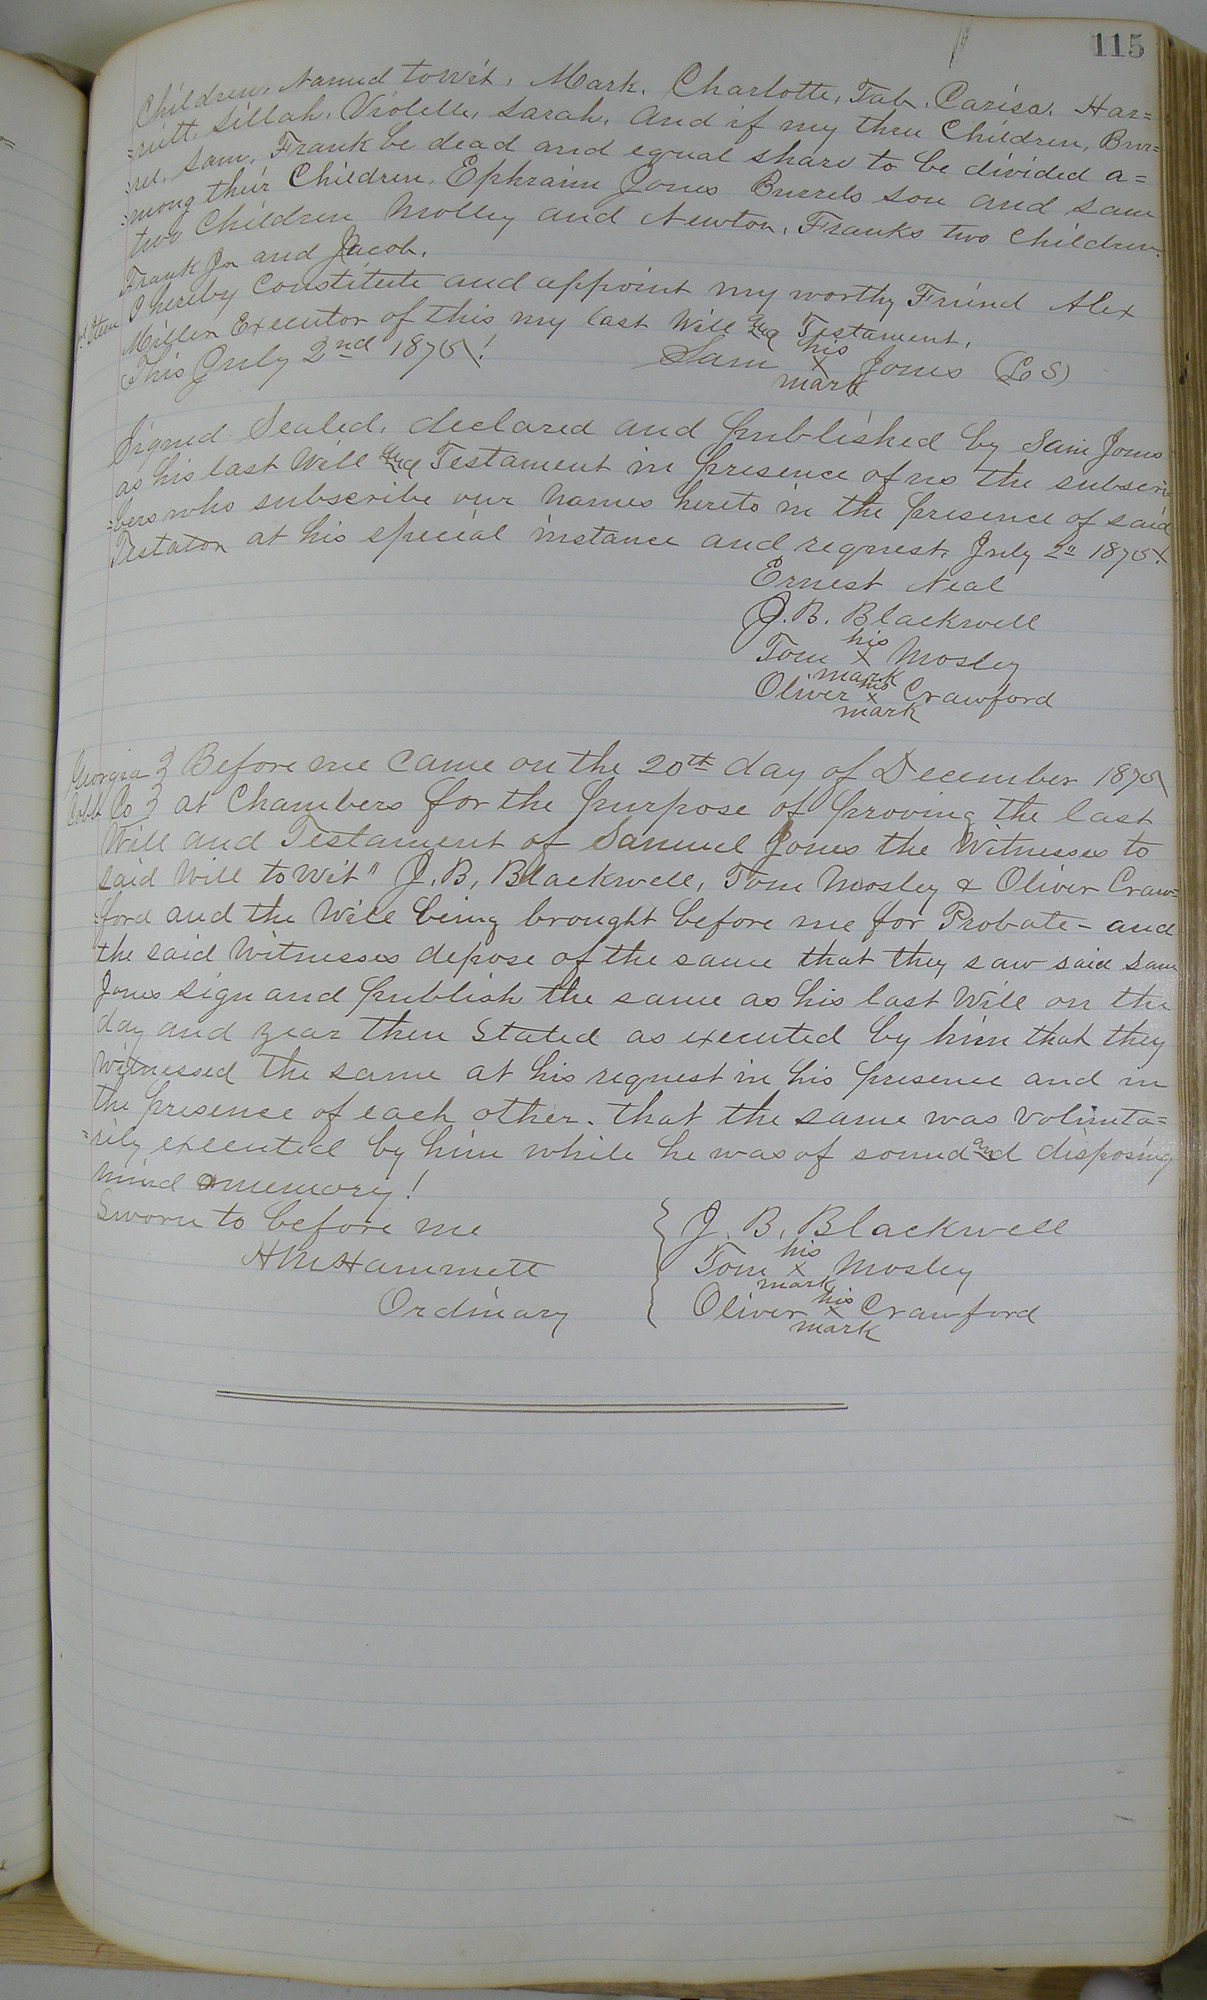 115
Children, Named to wit, Mark, Charlotte, Tab, Carisa, Har=
=riett, Sillah, Violette, Sarah, And if my three Children, Bur=
=rel, Sam, Frank be dead and equal share to be divided a=
=mong their Children, Ephraim Jones Burrels son and Sam
two Children Molley and Newton, Franks two Children
Frank Jr and Jacob.
Item I hereby Constitute and appoint my worthy Friend Alex
Miller Executor of this my last Will and Testament.
This July 2nd 1875!
his
Sam x Jones (L S)
mark
Signed Sealed, declared and published by Sam Jones
as his last Will and Testament in presence of us the subscri
=bers who subscribe our names hereto in the presence of said
Testator at his special instance and request, July 2" 1875.
Ernest Neal
J. B. Blackwell
his
Tom x Mosley
mark
his
Oliver x Crawford
mark
Georgia } Before me came on the 20th day of December 1875
Cobb Co } at Chambers for the purpose of proving the last
Will and Testament of Samuel Jones the Witnesses to
said Will to wit" J. B, Blackwell, Tom Mosley & Oliver Craw=
=ford and the Will being brought before me for Probate - and
the said Witnesses depose of the same that they saw said Sam
Jones sign and publish the same as his last Will on the
day and year then Stated as executed by him that they
witnessed the same at his request in his presence and in
the presence of each other. that the same was volunta=
=rily executed by him while he was of sound and disposing
mind memory!
Sworn to before me
H M Hammett
Ordinary
{ J. B, Blackwell
his
Tom x Mosley
mark
his
Oliver x Crawford
mark